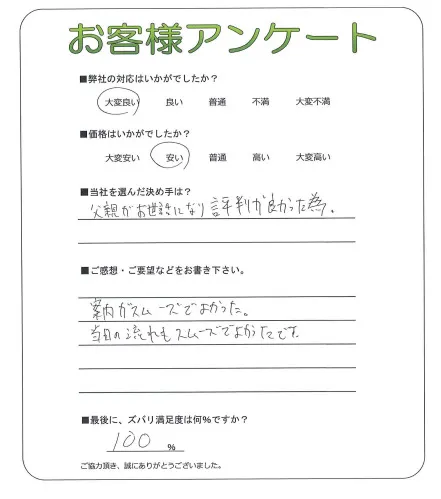 お客様アンケート
■弊社の対応はいかがでしたか？
大変良い 良い 普通 不満 大変不満
■価格はいかがでしたか？
大変安い 安い 普通 高い 大変高い
■当社を選んだ決め手は？
父親がお世話になり評判が良かった為。
■ご感想・ご要望などをお書き下さい。
案内がスムーズでよかった。
当日の流れもスムーズでよかったです。
■最後に、ズバリ満足度は何％ですか？
100 ％
ご協力頂き、誠にありがとうございました。